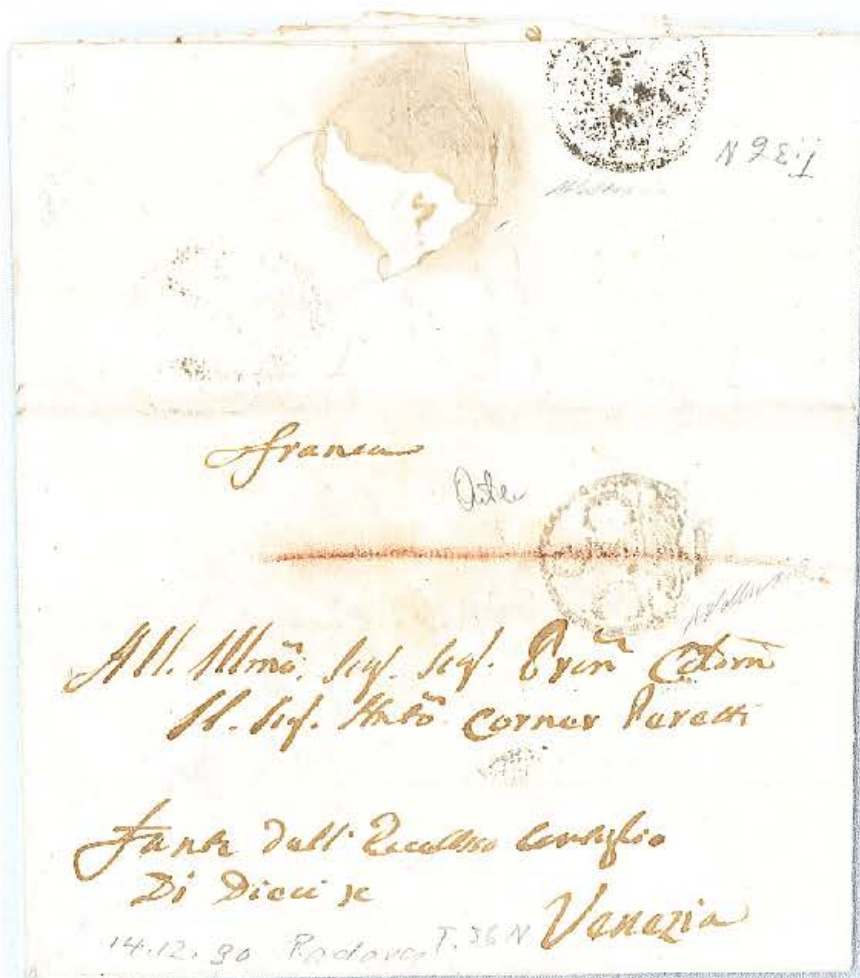 T.36 N
franca
All. Illmõ. Sig. Sig. Prõn Colm̃
Il. Sig. Antõ Corner
Fante Dall' Eccelso Consiglio
Di Dieci
Venezia
14.12.90 Padova T.36 N